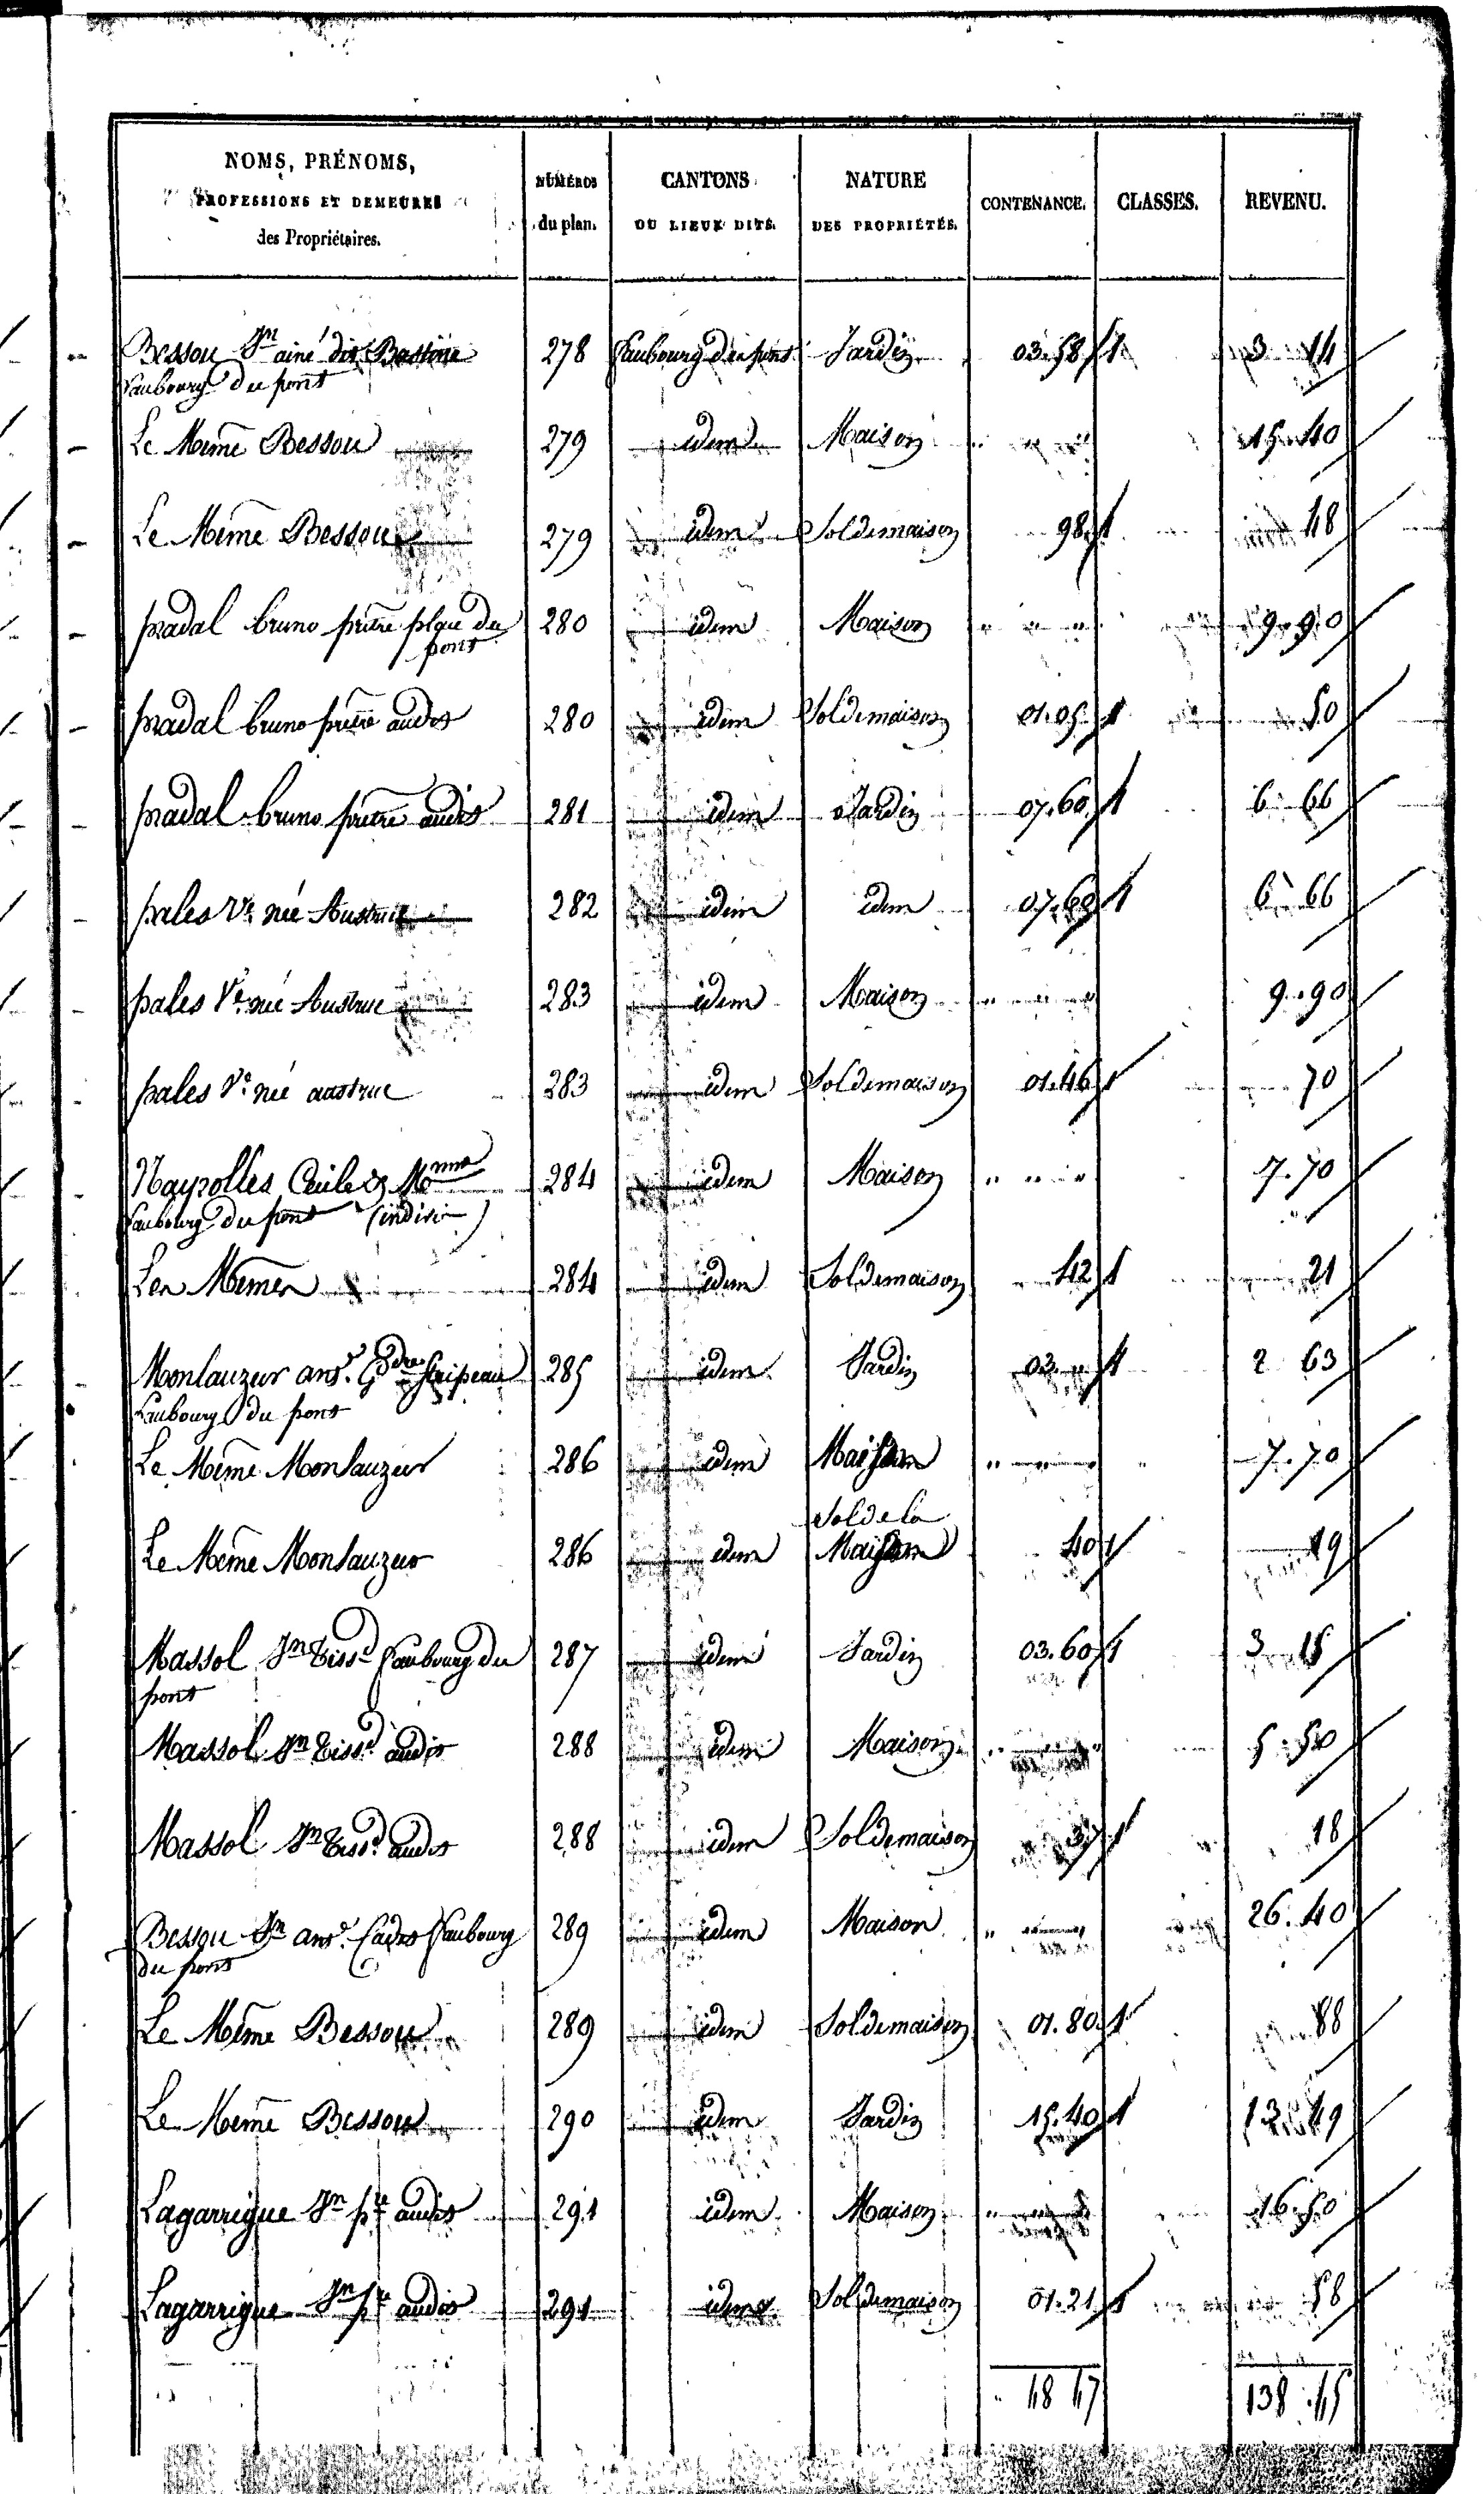 NOMS, PRÉNOMS,
PROFESSIONS ET DEMEURES
des Propriétaires.
NUMÉROS
du plan.
CANTONS
OU LIEUX DITS.
NATURE
DES PROPRIÉTÉS.
CONTENANCE.
CLASSES.
REVENU.
Bessou Jn ainé dit 278 faubourg du pont Jardin 03.58 1 3 14
faubourg du pont
Le Même Bessou 279 idem Maison " " " 15.40
Le Même Bessou 279 idem Sol de maison 98 1 48
pradal bruno prêtre plan du 280 idem Maison " " " 9.90
pont
pradal bruno prêtre audit 280 idem Sol de maison 01.05 1 50
pradal bruno prêtre audit 281 idem Jardin 07.60 1 6 66
pales Ve née Austruc 282 idem idem 07.60 1 6 66
pales Ve née Austruc 283 idem Maison " " " 9.90
pales Ve née austruc 283 idem Sol de maison 01.46 1 70
Nayrolles Cécile & 284 idem Maison " " " 7.70
faubourg du pont (indivis)
Les Mêmes 284 idem Sol de maison 42 1 21
Monlauzeur ant. 285 idem Jardin 03 " 1 2 63
faubourg du pont
Le Même Monlauzeur 286 idem Maison " " " 7.70
Sol de la
Le Même Monlauzeur 286 idem Maison 40 1 19
Massol Jn Tissd faubourg du 287 idem Jardin 03.60 1 3 15
pont
Massol Jn Tissd audit 288 idem Maison " " " 5.50
Massol Jn Tissd audit 288 idem Sol de maison 37 1 18
Bessou Jn ant. Cadet faubourg 289 idem Maison " " " 26.40
du pont
Le Même Bessou 289 idem Sol de maison 01.80 1 88
Le Même Bessou 290 idem Jardin 15.40 1 13.49
Lagarrigue Jn pre audit 291 idem Maison " " " 16.50
Lagarrigue Jn pre audit 291 idem Sol de maison 01.21 1 58
48 47 138.45